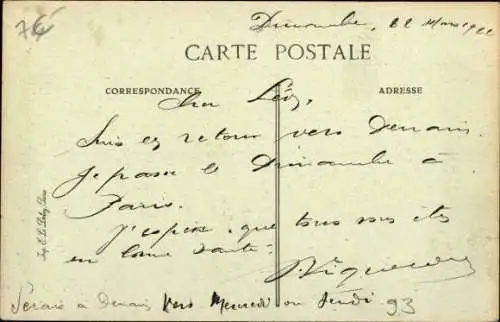 7€
Dimanche, 22 Mars 19
CARTE POSTALE
CORRESPONDANCE
ADRESSE
Cher Léon,
Suis en retour vers Denain.
Je passe le Dimanche à
Paris.
J'espère que tous vous êtes
en bonne santé.
Serais à Denain vers Mercredi ou Jeudi 93